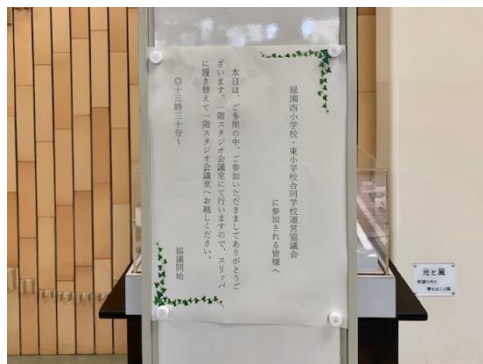 緑濁西小学校・東小学校合同学校運営協議会
に参加される皆様へ
本日は、ご多用の中、ご参加いただきましてありがとうご
ざいます。一階スタジオ会議室にて行いますので、スリッパ
に履き替えて一階スタジオ会議室へお越しください。
◎十三時三十分～　協議開始
光と風